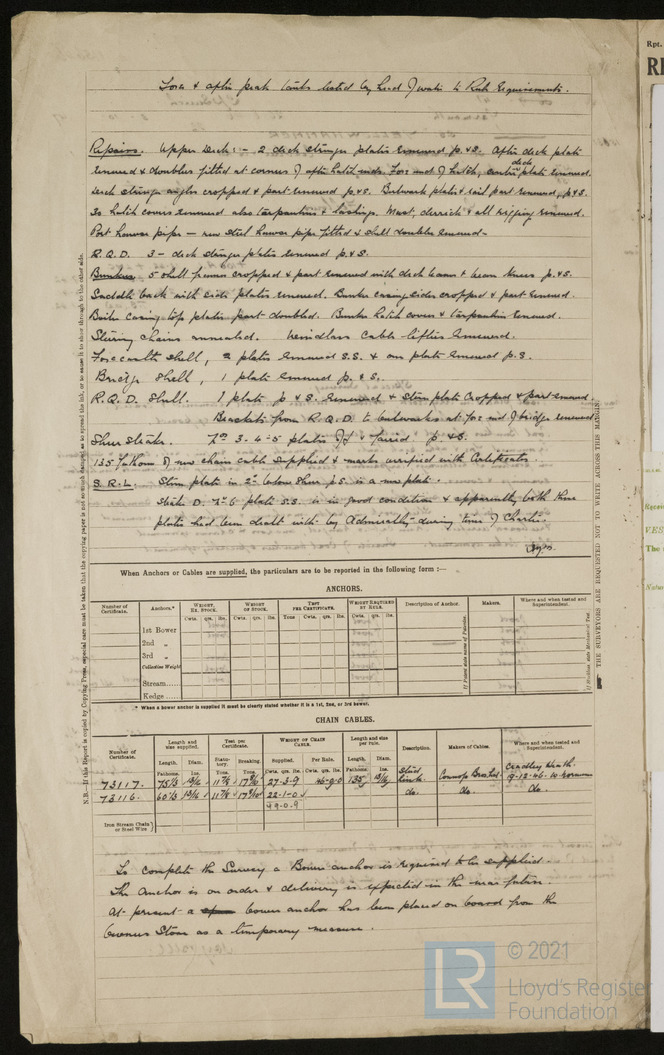 Fore & after peak tanks tested by head of water to Rule Requirements.
Repairs. Upper Deck:- 2 deck stringer plates renewed p.&S. After deck plate
renewed & doublers fitted at corners of after hatch ends. Fore end of hatch, centre deck plate renewed.
Deck stringer angles cropped & part renewed p.&S. Bulwark plate & rail part renewed, p.&S.
30 hatch covers renewed also tarpaulins & lashings. Mast, derrick & all rigging renewed.
Port hawse pipe - new steel hawse pipe fitted & shell doubler renewed-
R.Q.D. 3 - deck stringer plates renewed p.&S.
Bunkers 5 shell frames cropped & part renewed with deck beams & beam knees p.&S.
Saddle back with side plates renewed. Bunker casing sides cropped & part renewed.
Boiler casing top plates part doubled. Bunker hatch covers & tarpaulin renewed.
Steering chains annealed. Windlass cable lifters renewed.
Forecastle shell, 2 plates renewed S.S. & one plate renewed p.S.
Bridge shell, 1 plate renewed p. & S.
R.Q.D. Shell. 1 plate p & S. renewed & stem plate cropped & part renewed.
Brackets from R.Q.D. to bulwarks at fore end of bridge renewed
Sheer strake. 3. 4. 5 plates off & faired p. & S.
135 fathoms of new chain cable supplied & marks verified with Certificates
S.R.L. Stem plate in 2nd below sheer p.S. is a new plate.
Strake D. No 6 plate S.S. is in good condition & apparently both these
plates had been dealt with by Admiralty during time of Charter.
When Anchors or Cables are supplied, the particulars are to be reported in the following form :—
ANCHORS.
Number of Certificate. Anchors.* WEIGHT, EX. STOCK. WEIGHT OF STOCK. TEST PER CERTIFICATE. WEIGHT REQUIRED BY RULE. Description of Anchor. Makers. Where and when tested and Superintendent.
Cwts. qrs. lbs. Cwts. qrs. lbs. Tons Cwt. qrs. lbs. Cwts. qrs. lbs.
1st Bower
2nd „
3rd „
Collective Weight
Stream......
Kedge....
* When a bower anchor is supplied it must be clearly stated whether it is a 1st, 2nd, or 3rd bower.
CHAIN CABLES.
Number of Certificate. Length and size supplied. Test per Certificate. WEIGHT OF CHAIN CABLE. Length and size per rule. Description. Makers of Cables. Where and when tested and Superintendent.
Length. Diam. Statutory. Breaking. Supplied. Per Rule. Length. Diam.
Fathoms. Ins. Tons. Tons. Cwts. qrs. lbs. Cwts. qrs. lbs. Fathoms. Ins.
73117. 27-3-9 135 Stud Links. Cradley Heath. 9-12-46.
73116. 22-1-0 do. do. do.
49.0.9
Iron Stream Chain or Steel Wire
To complete the Survey a Bower anchor is required to be supplied
The Anchor is on order & delivery is expected in the near future.
At present a bower anchor has been placed on board from the
Owners Store as a temporary measure.
N.B.—If this Report is copied by Copying Press, especial care must be taken that the copying paper is not so much damped as to spread the ink, or to cause it to show through to the other side.
THE SURVEYORS ARE REQUESTED NOT TO WRITE ACROSS THIS MARGIN.
Rpt.
© 2021
LR
Lloyd's Register
Foundation